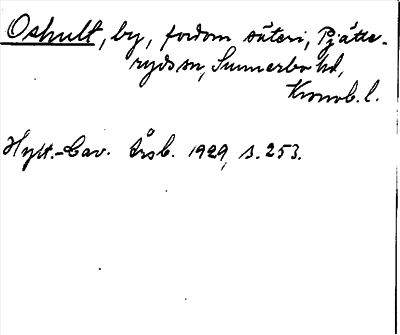 Oshult, by, fordom säteri, Pjätte-
ryds sn, Sunnerbo hd,
Kronob. l.
Hylt.-Cav. Årsb. 1929, s. 253.